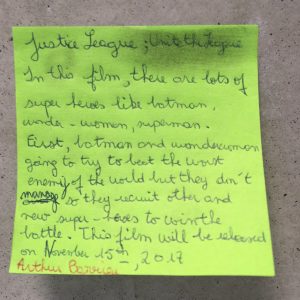 Justice League ; Unite the League
In this film, there are lots of
super heroes like batman,
wonder-women, superman.
First, batman and wonderwoman
going to try to beat the worst
enemy of the world but they din't
manage so they recruit other and
new super-heroes to win the
battle. This film will be released
on November 15th, 2017
Arthur